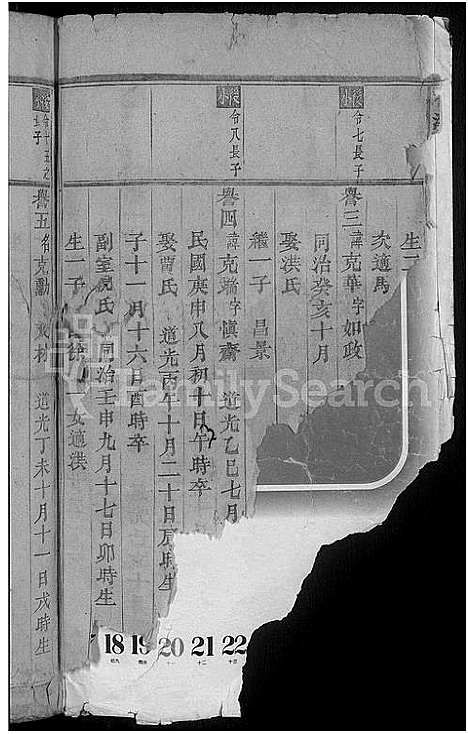 生二
次適馬
令七長子
譽三諱克華字如政
同治癸亥十月
娶洪氏
繼一子 昌景
令八長子
譽四諱克瑜字慎齋 道光乙巳七月
民國庚申八月初十月午時卒
娶曹氏 道光丙午十月二十日辰時生
子十一月十六月酉時卒
副室 氏 同治壬申九月十七日卯時生
生一子 徐 女適洪
令十五之
長子
譽五名克勳 道光丁未十月十一日戌時生
FamilySearch
18 19 20 21 22